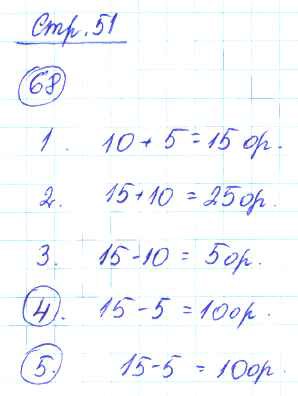 Стр. 51
68
1. 10 + 5 = 15 ор.
2. 15 + 10 = 25 ор.
3. 15 - 10 = 5 ор.
4. 15 - 5 = 10 ор.
5. 15 - 5 = 10 ор.